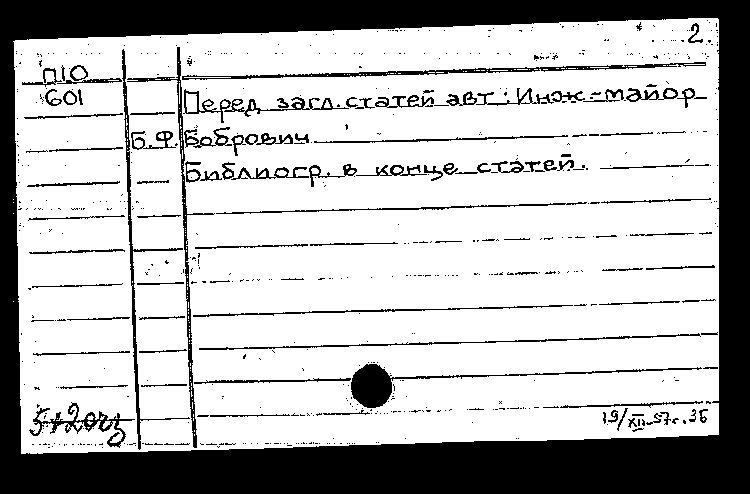 2.
П10
601 Перед загл. статей авт: Инж-майор
Б.Ф. Бобрович
Библиогр. в конце статей.
19/XII-57г. 36